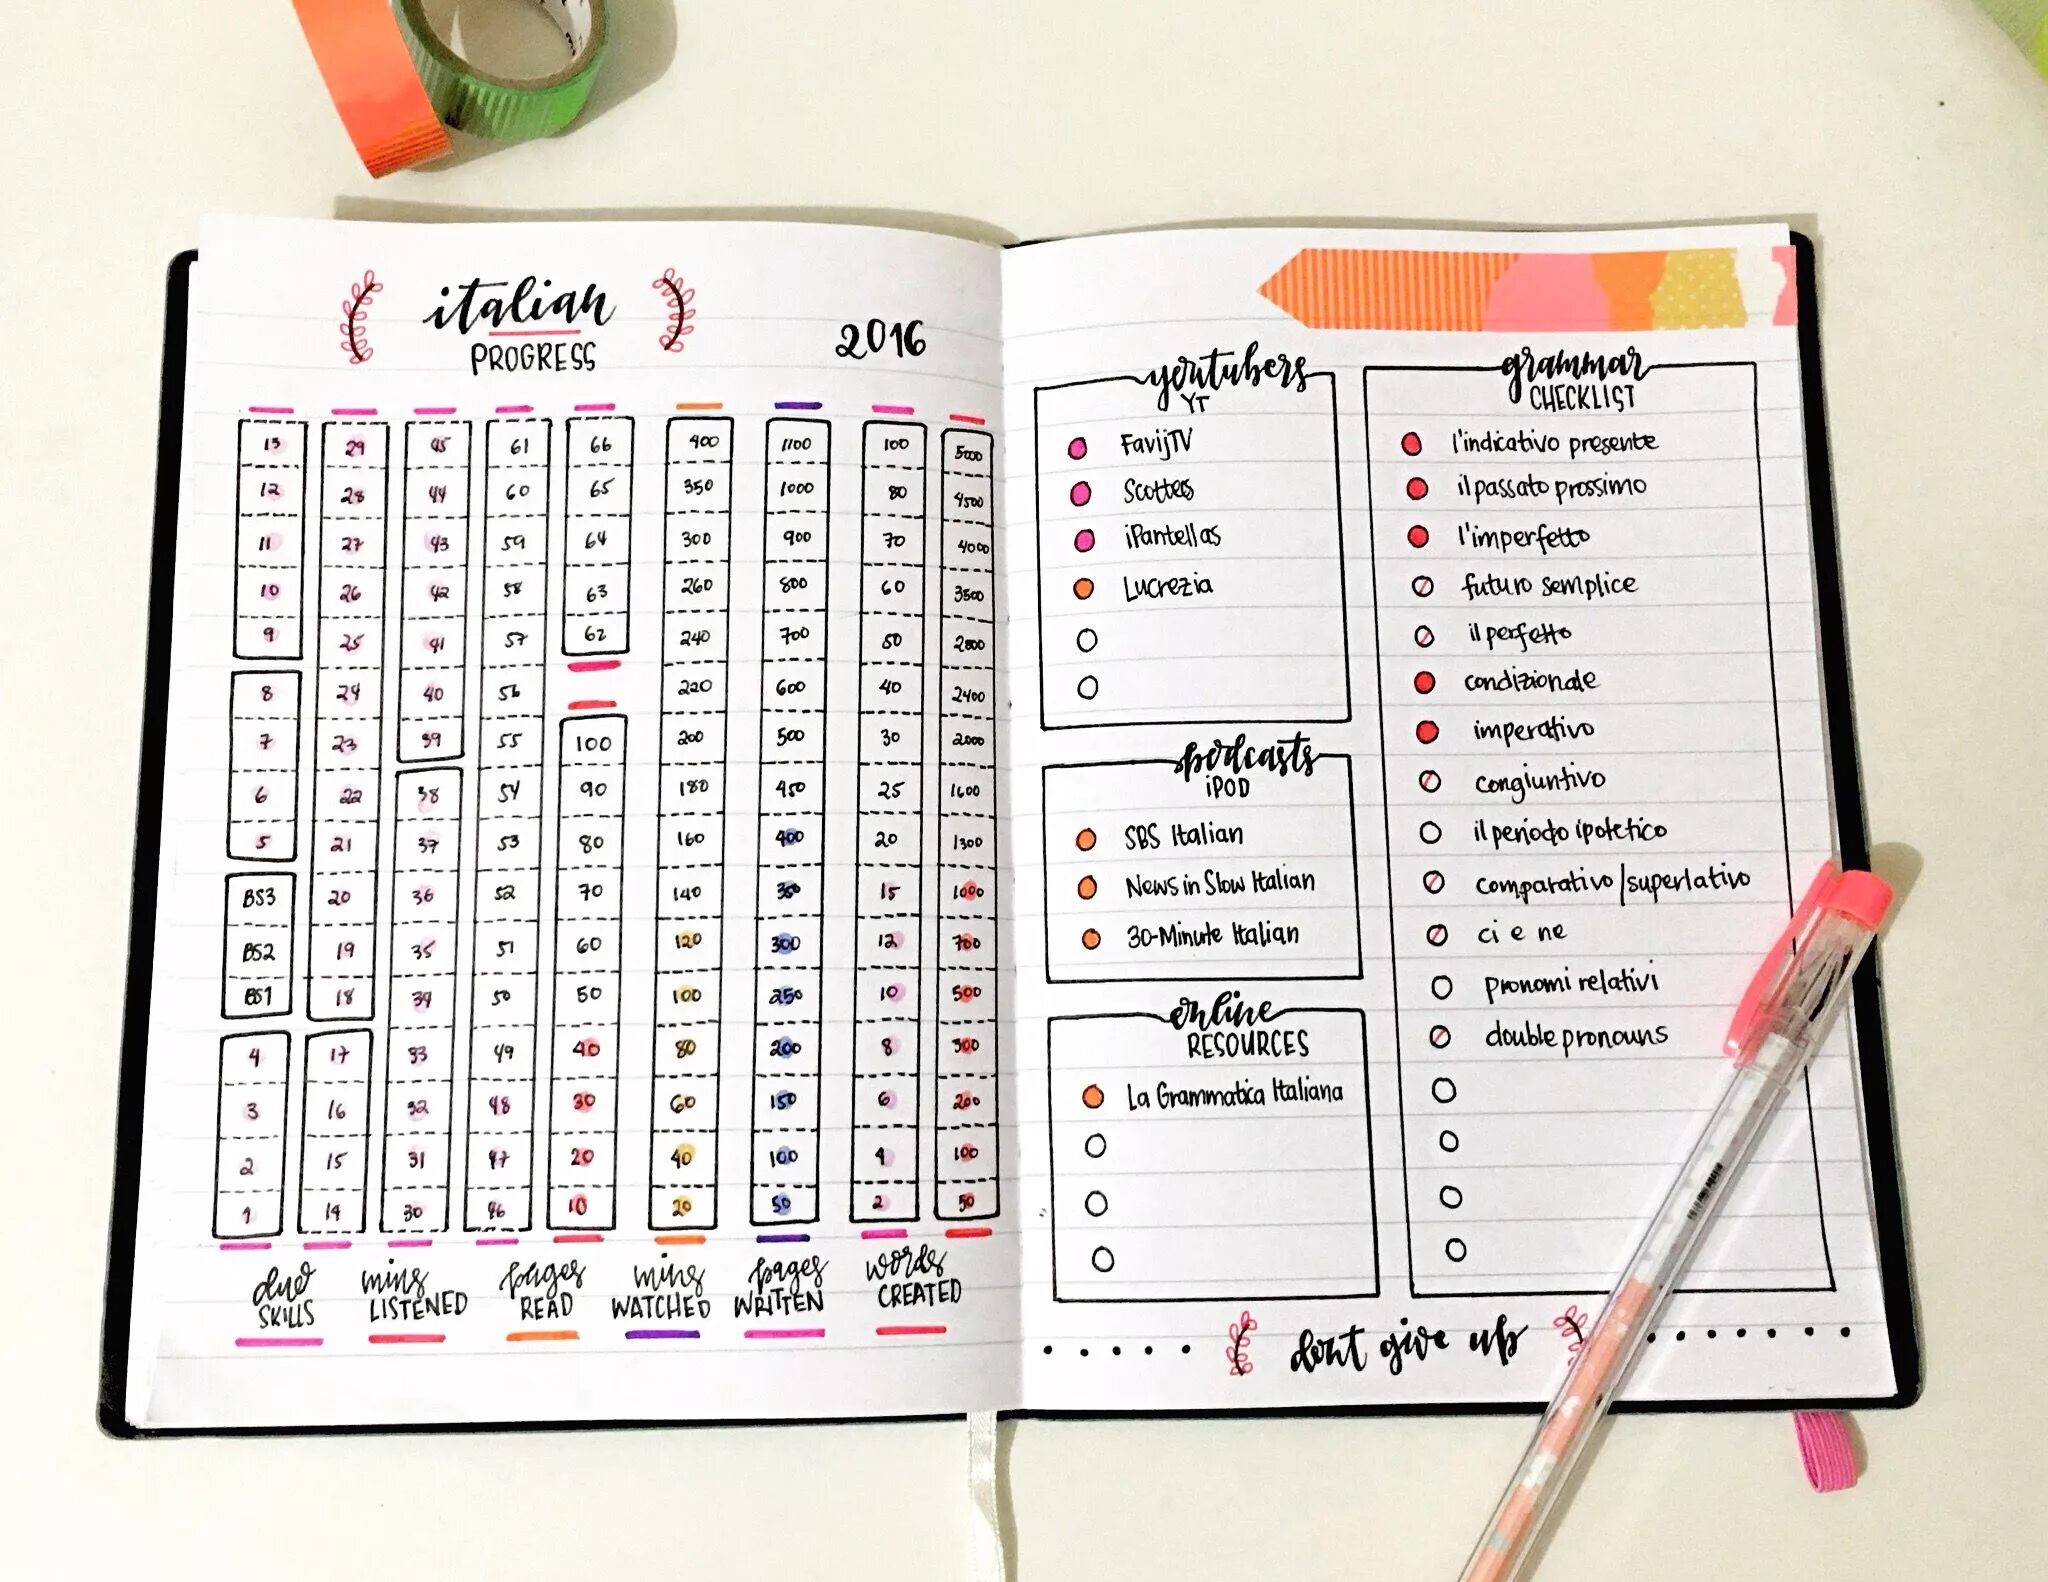 italian
PROGRESS
2016
13 29 45 61 66 400 1100 100 5000
12 28 44 60 65 350 1000 80 4500
11 27 43 59 64 300 900 70 4000
10 26 42 58 63 260 800 60 3500
9 25 41 57 62 240 700 50 2800
8 24 40 56 220 600 40 2400
7 23 39 55 100 200 500 30 2000
6 22 38 54 90 180 450 25 1600
5 21 37 53 80 160 400 20 1300
BS3 20 36 52 70 140 350 15 1000
BS2 19 35 51 60 120 300 12 700
BS1 18 34 50 50 100 250 10 500
4 17 33 49 40 80 200 8 300
3 16 32 48 30 60 150 6 200
2 15 31 47 20 40 100 4 100
1 14 30 46 10 20 50 2 50
duo
SKILLS
mins
LISTENED
pages
READ
mins
WATCHED
pages
WRITTEN
words
CREATED
youtubers
YT
FavijTV
Scottecs
iPantellas
Lucrezia
podcasts
iPOD
SBS Italian
News in Slow Italian
30-Minute Italian
online
RESOURCES
La Grammatica Italiana
grammar
CHECKLIST
l'indicativo presente
il passato prossimo
l'imperfetto
futuro semplice
il perfetto
condizionale
imperativo
congiuntivo
il periodo ipotetico
comparativo/superlativo
ci e ne
pronomi relativi
double pronouns
dont give up